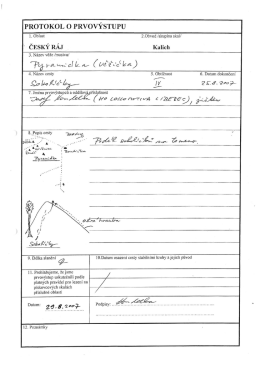 PROTOKOL O PRVOVÝSTUPU
1. Oblast 2. Obvod skalního okolí
ČESKÝ RÁJ Kalich
3. Název věže /masivu/
Pyramidka (Věžička)
4. Název cesty 5. Obtížnost 6. Datum dokončení
Sokolíčky IV 25.8.2007
7. Jména prvovýstupců a oddílová příslušnost
Josef (HO LOKOMOTIVA LIBEREC),
8. Popis cesty
Pyramidka
Podél na
hrana
Sokolíčky
9. Délka slanění 10. Datum osazení cesty stabilními kruhy a jejich původ
11. Prohlašujeme, že jsme
prvovýstup uskutečnili podle
platných pravidel pro lezení na
pískovcových skalách
příslušné oblasti
Datum: 29.8.2007 Podpisy:
12. Poznámky